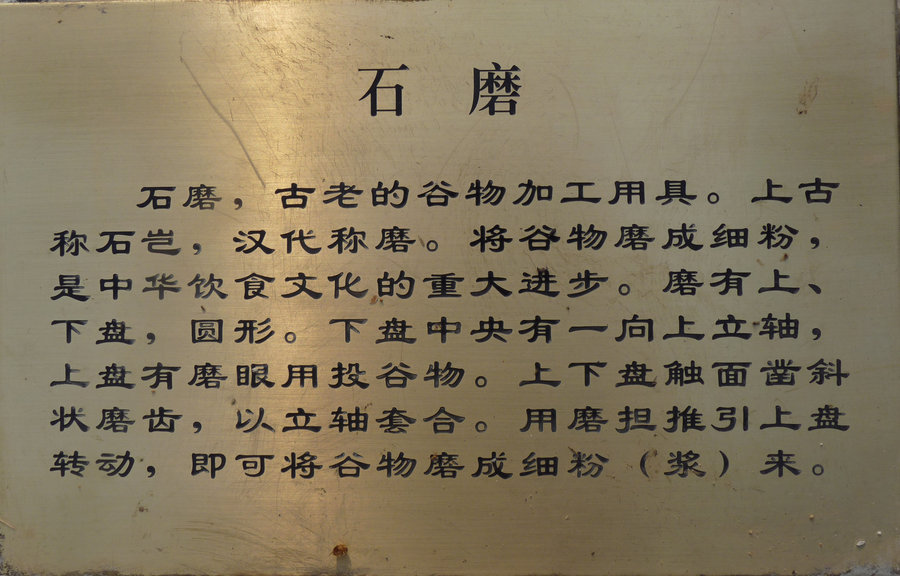 石磨
石磨，古老的谷物加工用具。上古
称石岂，汉代称磨。将谷物磨成细粉，
是中华饮食文化的重大进步。磨有上、
下盘，圆形。下盘中央有一向上立轴，
上盘有磨眼用投谷物。上下盘触面凿斜
状磨齿，以立轴套合。用磨担推引上盘
转动，即可将谷物磨成细粉（浆）来。